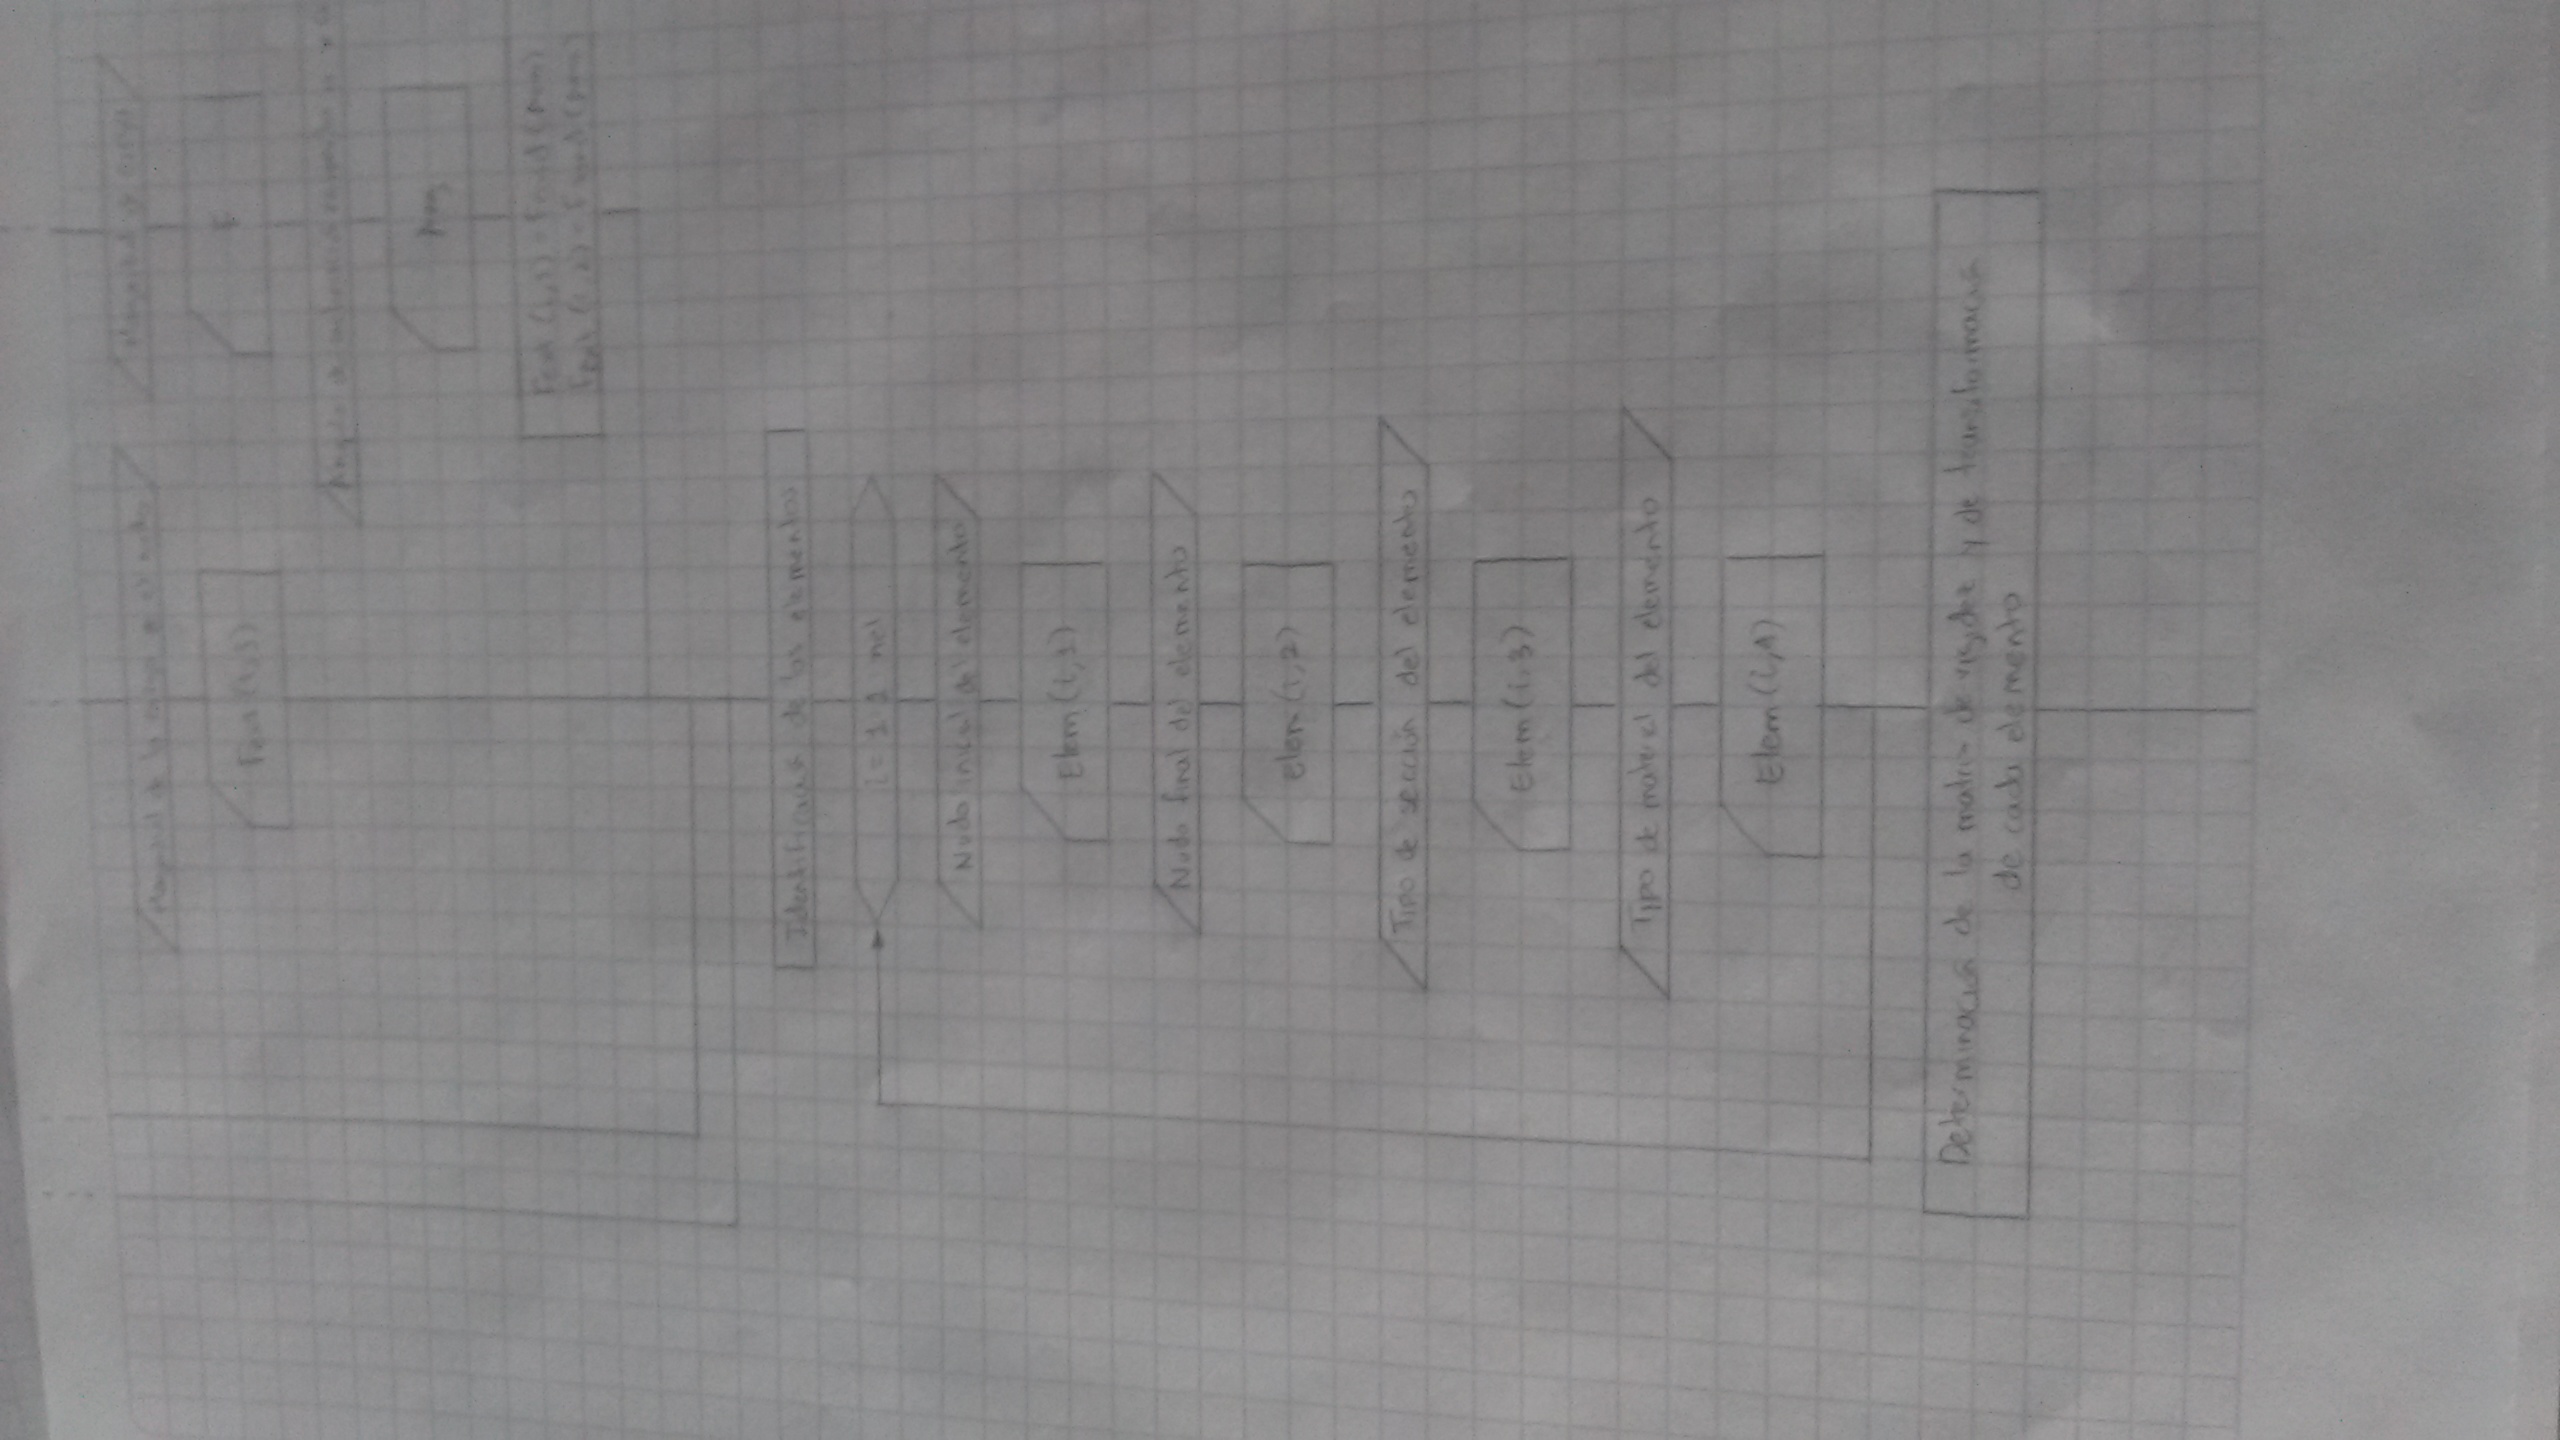 Magnitud de la carga en el nudo
Fext (i,3)
Magnitud de carga
F
Ang
Fext (i,1) =
Fext (i,2) =
Identificación de los elementos
i = 1 : 1 : nel
Nudo inicial del elemento
Elem (i,1)
Nudo final del elemento
Elem (i,2)
Tipo de sección del elemento
Elem (i,3)
Tipo de material del elemento
Elem (i,4)
Determinación de la matriz de rigidez y de transformación
de cada elemento